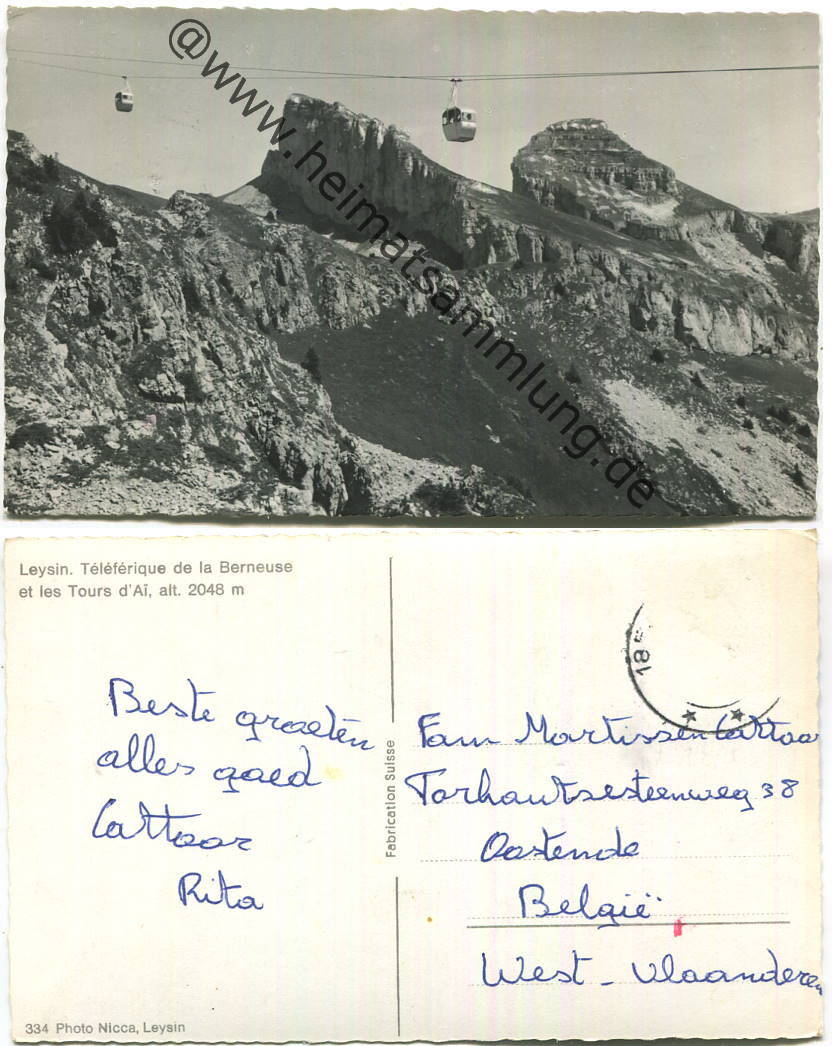 @www.heimatsammlung.de
Leysin. Téléférique de la Berneuse
et les Tours d'Aï, alt. 2048 m
Beste groeten
alles goed
Cattoor
Rita
Fabrication Suisse
18
Fam Martissen Cattoor
Torhoutsesteenweg 38
Oostende
België
West-Vlaanderen
334 Photo Nicca, Leysin